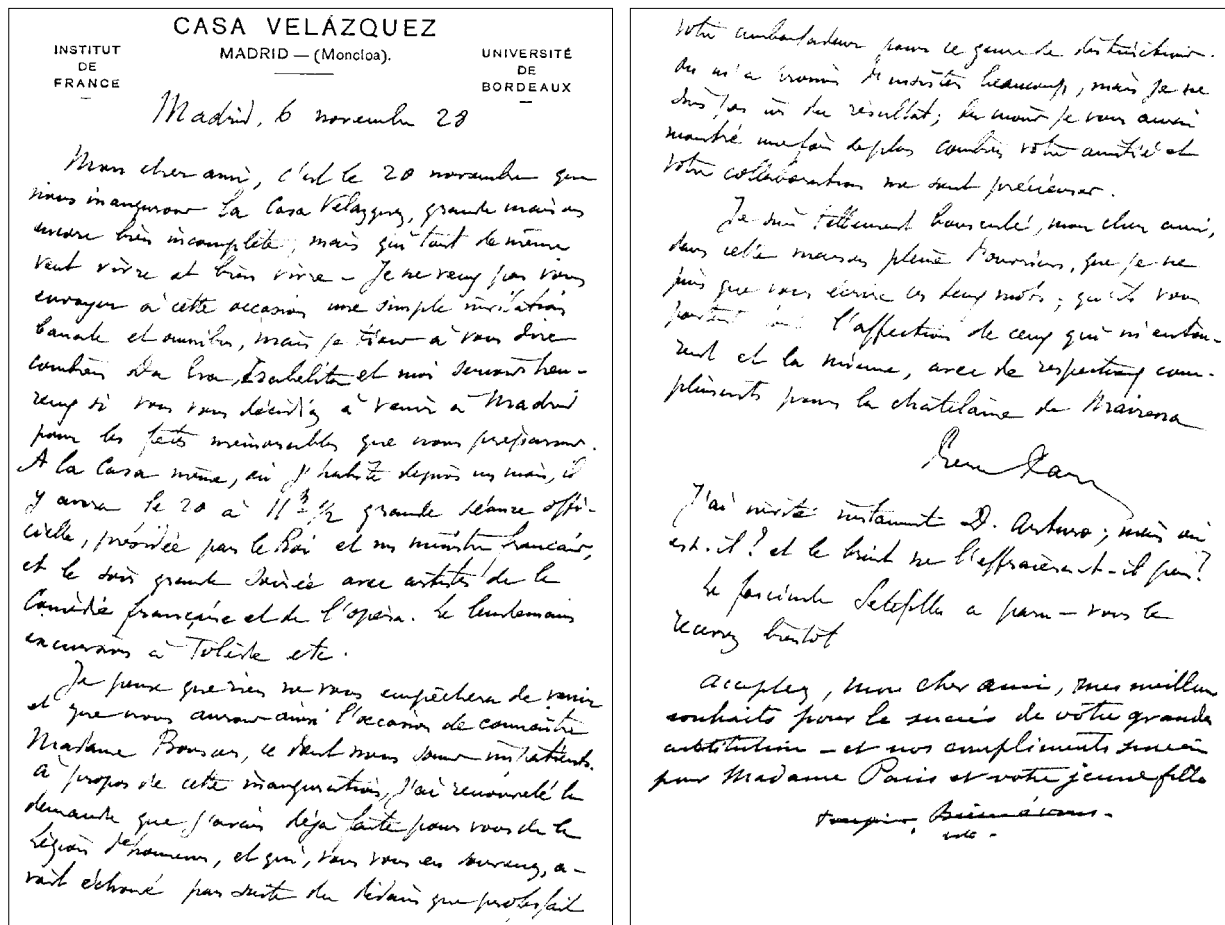 CASA VELÁZQUEZ
INSTITUT
DE
FRANCE
MADRID — (Moncloa).
UNIVERSITÉ
DE
BORDEAUX
Madrid, 6 novembre 28
Mon cher ami, c'est le 20 novembre que
nous inaugurons la Casa Velazquez, grande maison
encore bien incomplète, mais qui tout de même
veut vivre et bien vivre – Je ne veux pas vous
envoyer à cette occasion une simple invitation
banale et omnibus, mais je tiens à vous dire
combien Isabelita et moi serions heu-
reux si vous vous décidiez à venir à Madrid
pour les fêtes mémorables que nous préparons.
A la Casa même, où j'habite depuis un mois, il
y aura le 20 à 11 h 1/2 grande séance offi-
cielle, présidée par le Roi et un ministre français,
et le soir grande soirée avec artistes de la
Comédie française et de l'opéra. Le lendemain
excursion à Tolède etc.
Je pense que rien ne vous empêchera de venir
et que nous aurons ainsi l'occasion de connaître
Madame Bonsor, ce dont nous sommes impatients.
A propos de cette inauguration, j'ai renouvelé la
demande que j'avais déjà faite pour vous de la
Légion d'honneur, et qui, vous vous en souvenez, a-
vait échoué par suite du dédain que professait
votre ambassadeur pour ce genre de distinctions.
On m'a promis d'insister beaucoup, mais je ne
suis pas sûr du résultat; du moins je vous aurai
montré une fois de plus combien votre amitié et
votre collaboration me sont précieuses.
Je suis tellement bousculé, mon cher ami,
dans cette maison pleine d'ouvriers, que je ne
puis que vous écrire ces deux mots; qu'ils vous
portent l'affection de ceux qui m'entou-
rent et la mienne, avec de respectueux com-
pliments pour la châtelaine de Mairena
Pierre Paris
J'ai invité instamment D. Arturo; mais où
est-il? et le bruit ne l'effraiera-t-il pas?
Le fascicule Setefilla a paru – vous le
recevrez bientôt
Acceptez, mon cher ami, mes meilleurs
souhaits pour le succès de votre grande
institution – et nos compliments
pour Madame Paris et votre jeune fille
toujours, Bien à vous.